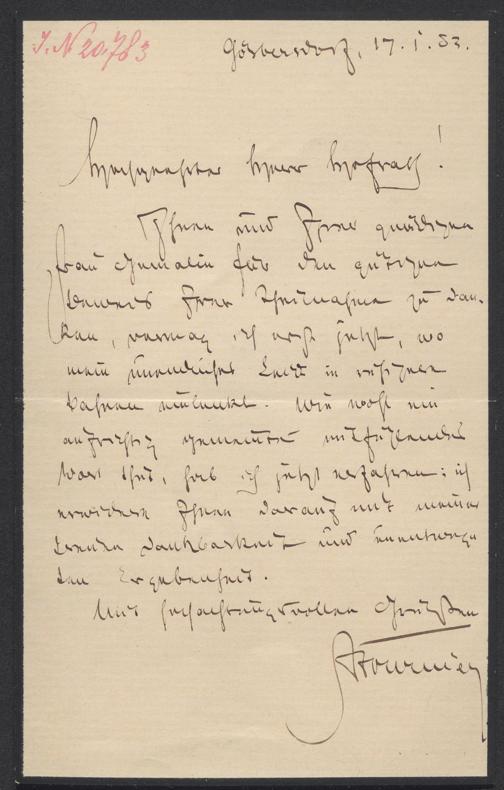 J. N 20.783
Görbersdorf, 17. I. 83.
Hochgeehrter Herr Hofrath!
Ihnen und Ihrer gnädigen
Frau Gemalin für den gütigen
Beweis Ihrer Theilnahme zu dan-
ken, vermag ich erst jetzt, wo
mein unendliches Leid in ruhigere
Bahnen einlenkt. Wie wohl ein
aufrichtig gemeintes mitfühlendes
Wort thut, hab ich jetzt erfahren; ich
erwidere Ihnen darauf mit meiner
treuen Dankbarkeit und unentwegten
Ergebenheit.
Mit hochachtungsvollen Grüßen
Fournier